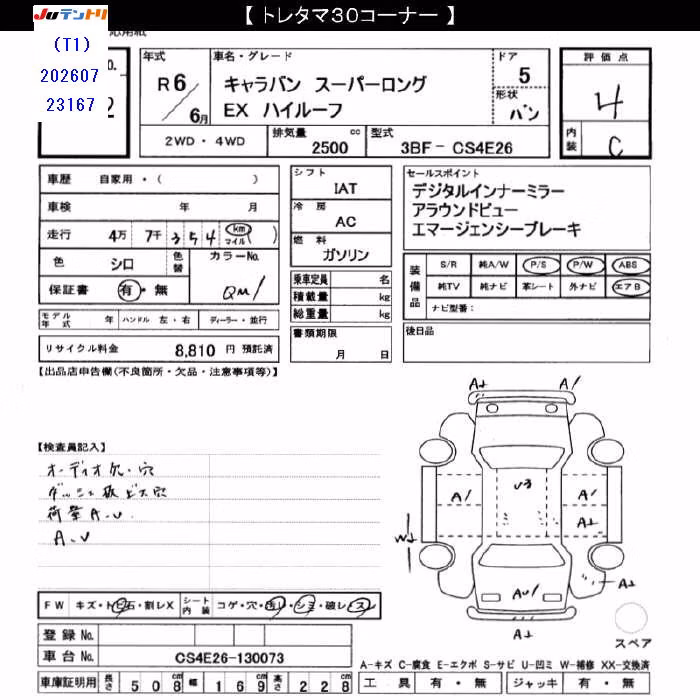 【 トレタマ30コーナー 】
JUテントリ
(T1)
202607
23167
年式
R6/6月
車名・グレード
キャラバン スーパーロング
EX ハイルーフ
ドア
5
形状
バン
評価点
4
内装
C
2WD・4WD
排気量
2500 cc
型式
3BF- CS4E26
車歴 自家用・( )
車検 年 月
走行 4万 7千 3 5 4 km マイル )
色 シロ 色替
カラーNo.
QM1
保証書 有・無
モデル年式 年 ハンドル 左・右 ディーラー・並行
リサイクル料金 8,810 円 預託済
シフト
IAT
冷房
AC
燃料
ガソリン
乗車定員 名
積載量 kg
総重量 kg
書類期限
月 日
セールスポイント
デジタルインナーミラー
アラウンドビュー
エマージェンシーブレーキ
装備品
S/R 純A/W P/S P/W ABS
純TV 純ナビ 革シート 外ナビ エアB
ナビ型番：
後日品
【出品店申告欄(不良箇所・欠品・注意事項等)】
【検査員記入】
オーディオ欠・穴
荷室 A.U
A.U
A± A/
U3
A/ A/
A±
W±
AU/
A±
A±
スペア
FW キズ・トビ石・割レX シート内装 コゲ・穴・汚レ・シミ・破レ・スレ
登録 No.
車台 No. CS4E26-130073
車庫証明用 長さ 508 cm 幅 169 cm 高さ 228 cm
A-キズ C-腐食 E-エクボ S-サビ U-凹ミ W-補修 XX-交換済
工具 有・無 ジャッキ 有・無